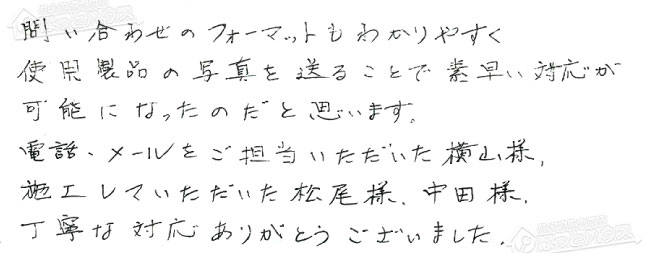 問い合わせのフォーマットもわかりやすく
使用製品の写真を送ることで素早い対応が
可能になったのだと思います。
電話、メールをご担当いただいた横山様、
施工していただいた松尾様、中田様、
丁寧な対応ありがとうございました。